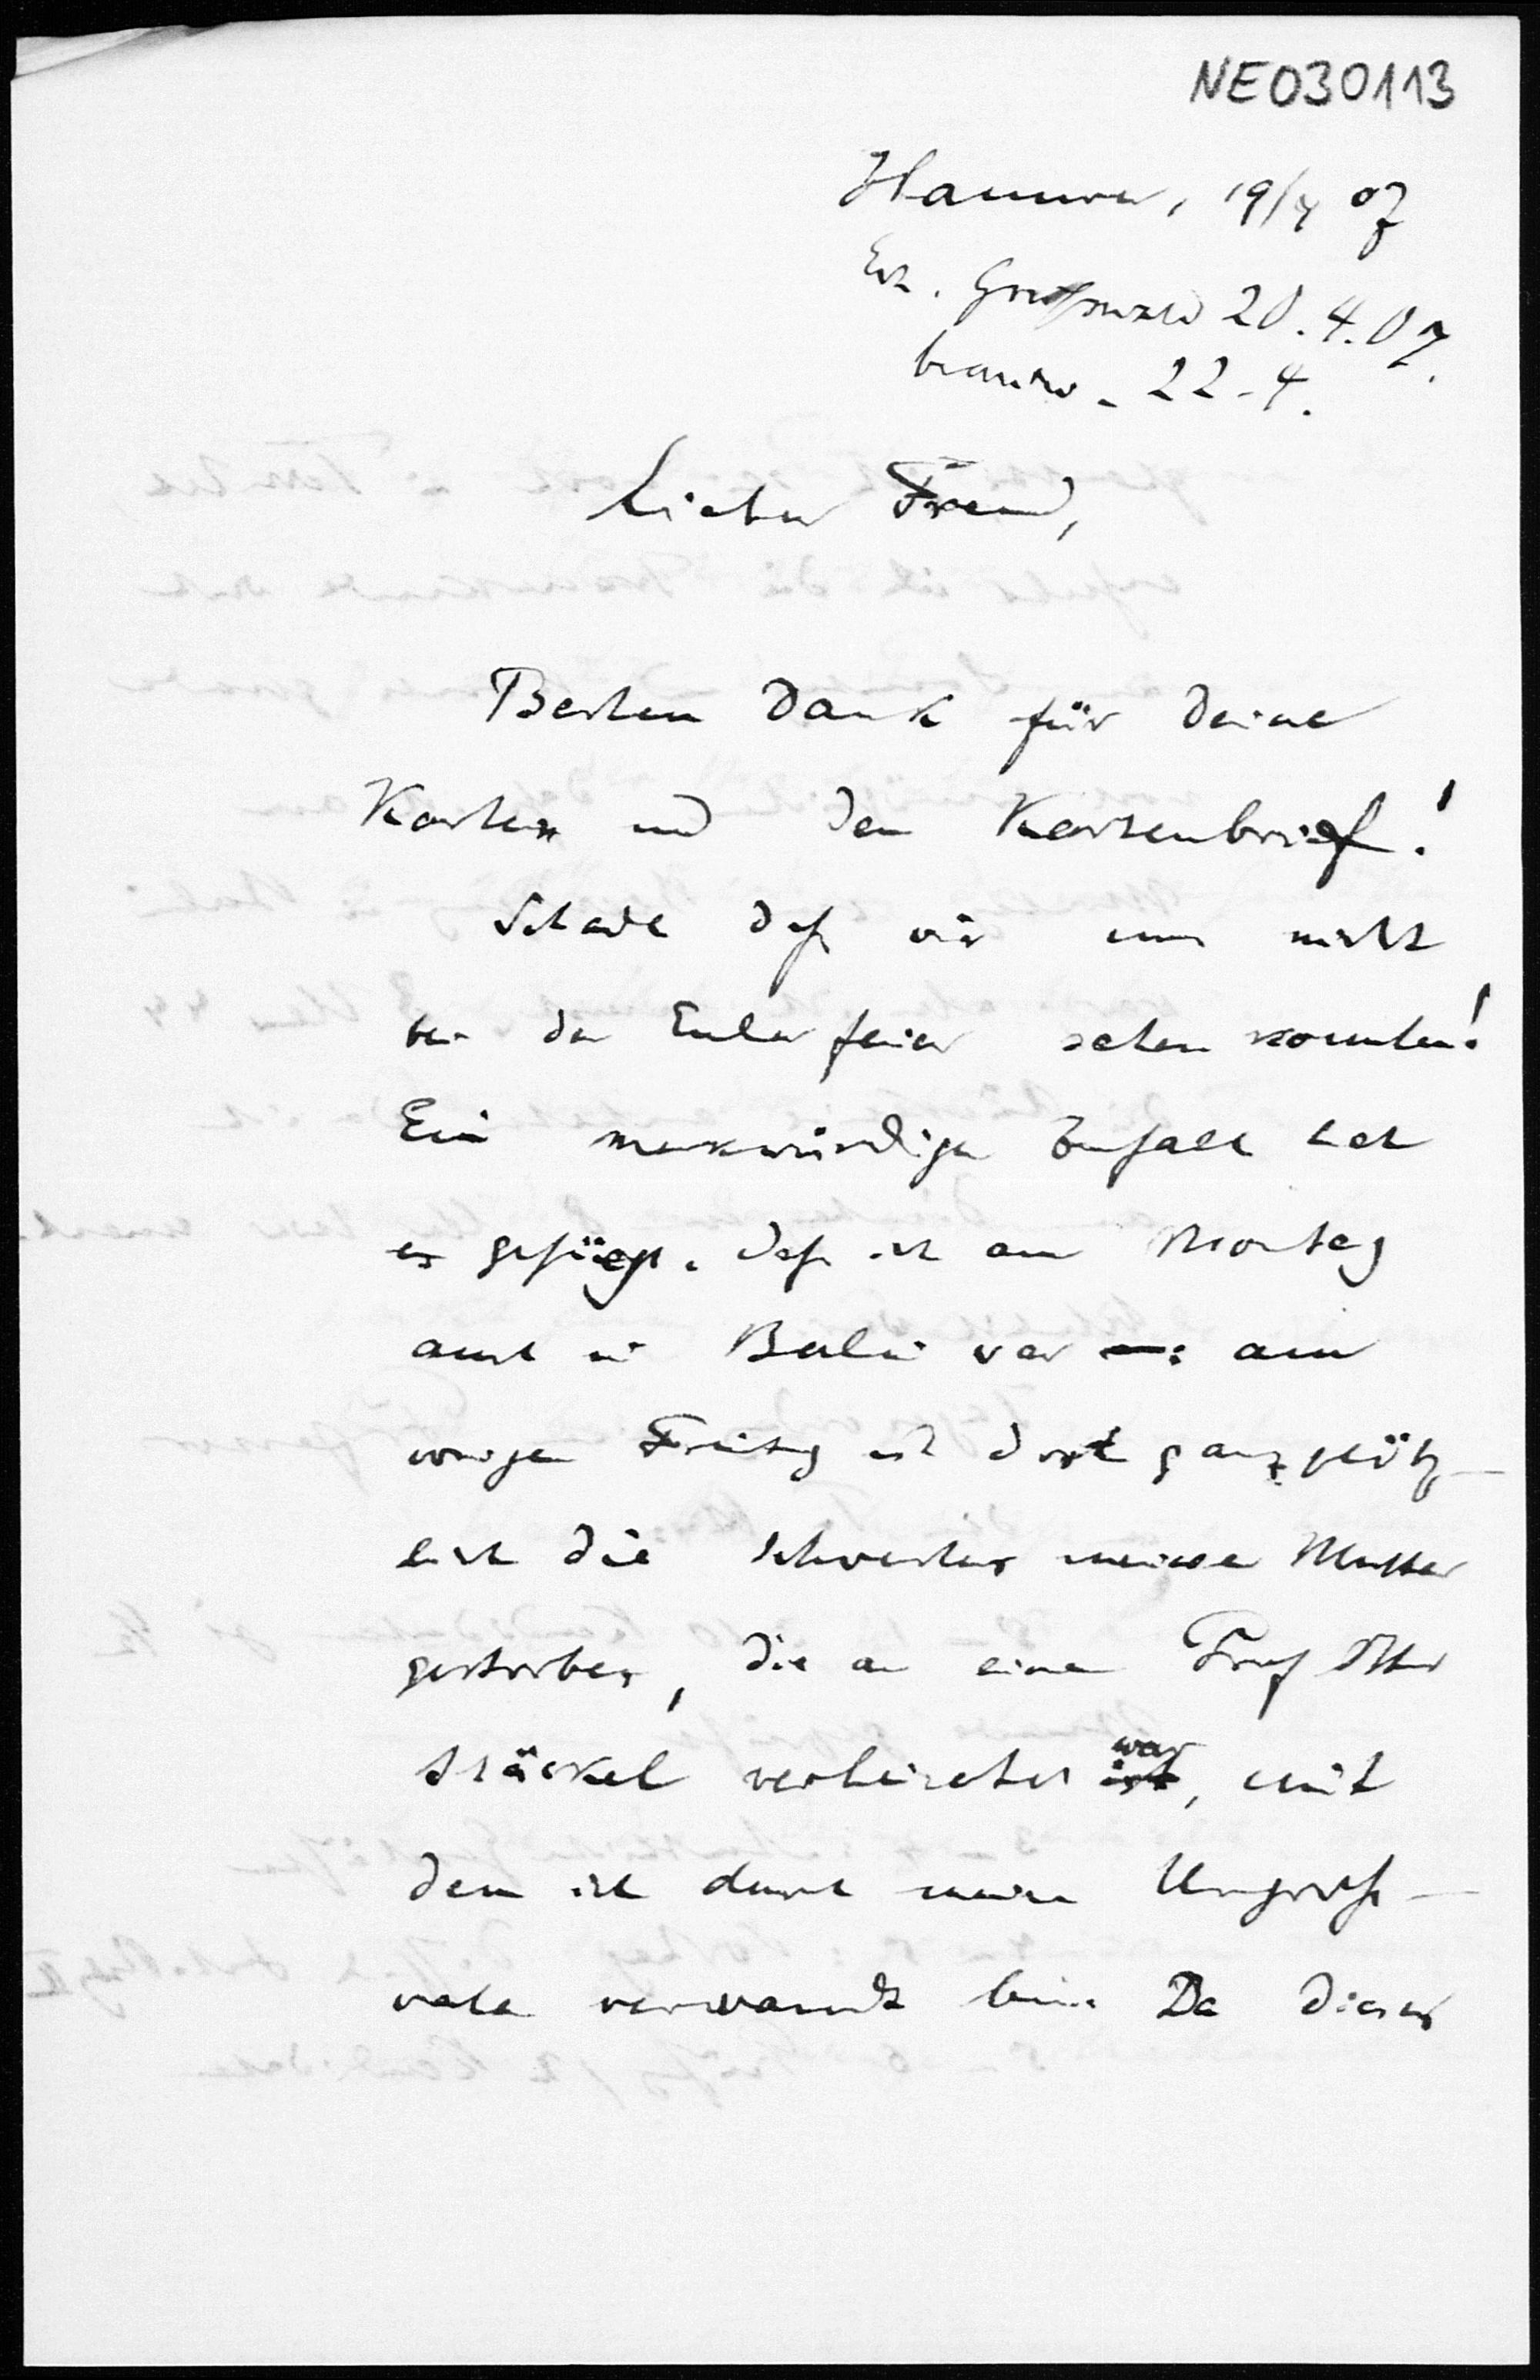 NE030113
Hannover, 19/4 07
Erh. Greifswald 20.4.07.
beantw. 22.4.
Lieber Freund,
Besten Dank für Deine
Karten und den Kartenbrief!
Schade daß wir uns nicht
bei der Eulerfeier sehen konnten!
Ein merkwürdiger Zufall hat
es gefügt, daß ich am Montag
auch in Berlin war: am
vorigen Freitag ist dort ganz plötz-
lich die Schwester meiner Mutter
gestorben, die an einen Prof Otto
Stäckel verheiratet ist war, mit
dem ich durch meinen Urgroß-
vater verwandt bin. Da dieser